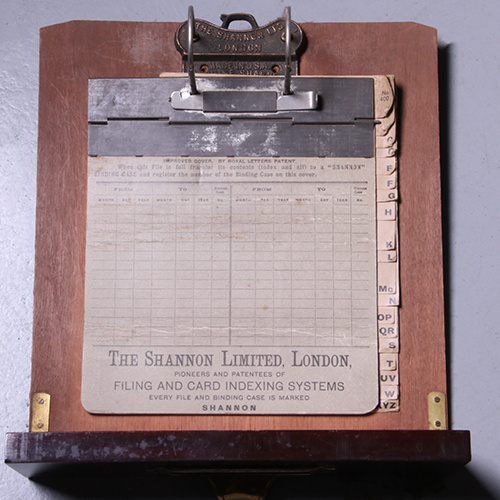 THE SHANNON LTD
LONDON
MADE IN U.S.A.
No
400
IMPROVED COVER, BY ROYAL LETTERS PATENT.
When this File is full transfer its contents (index and all) to a "SHANNON"
BINDING CASE and register the number of the Binding Case on this cover.
FROM TO FROM TO
MONTH DAY YEAR MONTH DAY YEAR No. MONTH DAY YEAR MONTH DAY YEAR No.
E
F
G
H
K
L
Mc
N
OP
QR
S
T
UV
W
XYZ
THE SHANNON LIMITED, LONDON,
PIONEERS AND PATENTEES OF
FILING AND CARD INDEXING SYSTEMS
EVERY FILE AND BINDING CASE IS MARKED
SHANNON